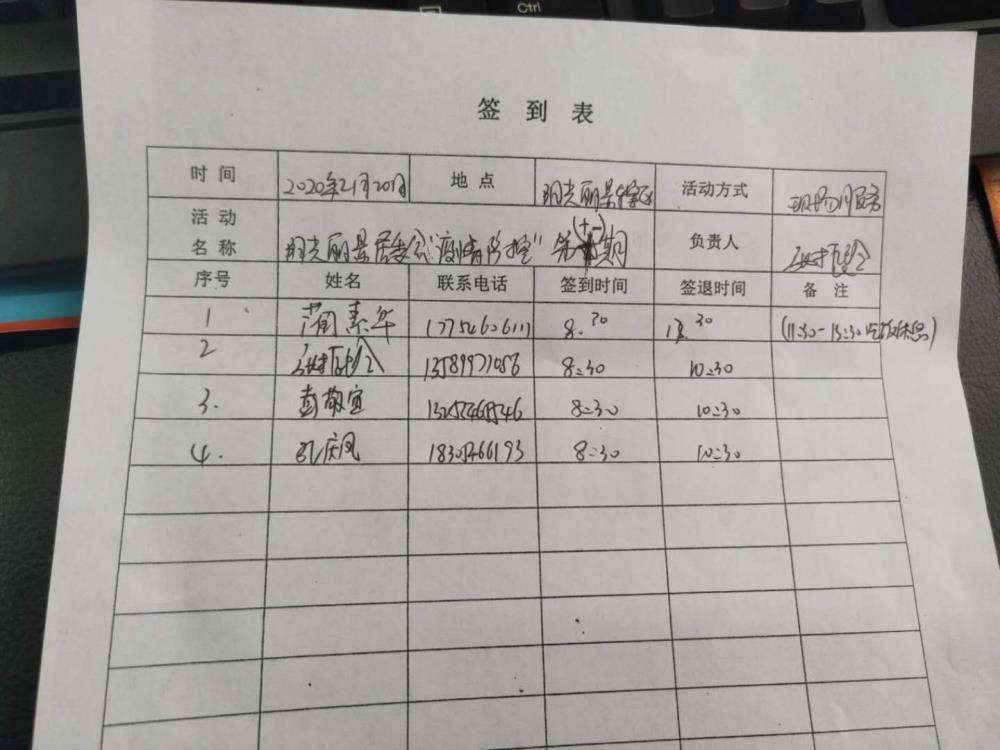 Ctrl
签 到 表
时 间 2020年2月20日 地 点 阳光丽景 活动方式 现场服务
活 动
名 称 阳光丽景居委会"疫情防控"第(十一)期 负责人
序号 姓名 联系电话 签到时间 签退时间 备 注
1 蔺素华 17754626111 8:30 30 (11:30-13:30吃饭休息)
2 13589977056 8:30 10:30
3. 彭敬宜 8:30 10:30
4. 孔庆凤 18305466193 8:30 10:30